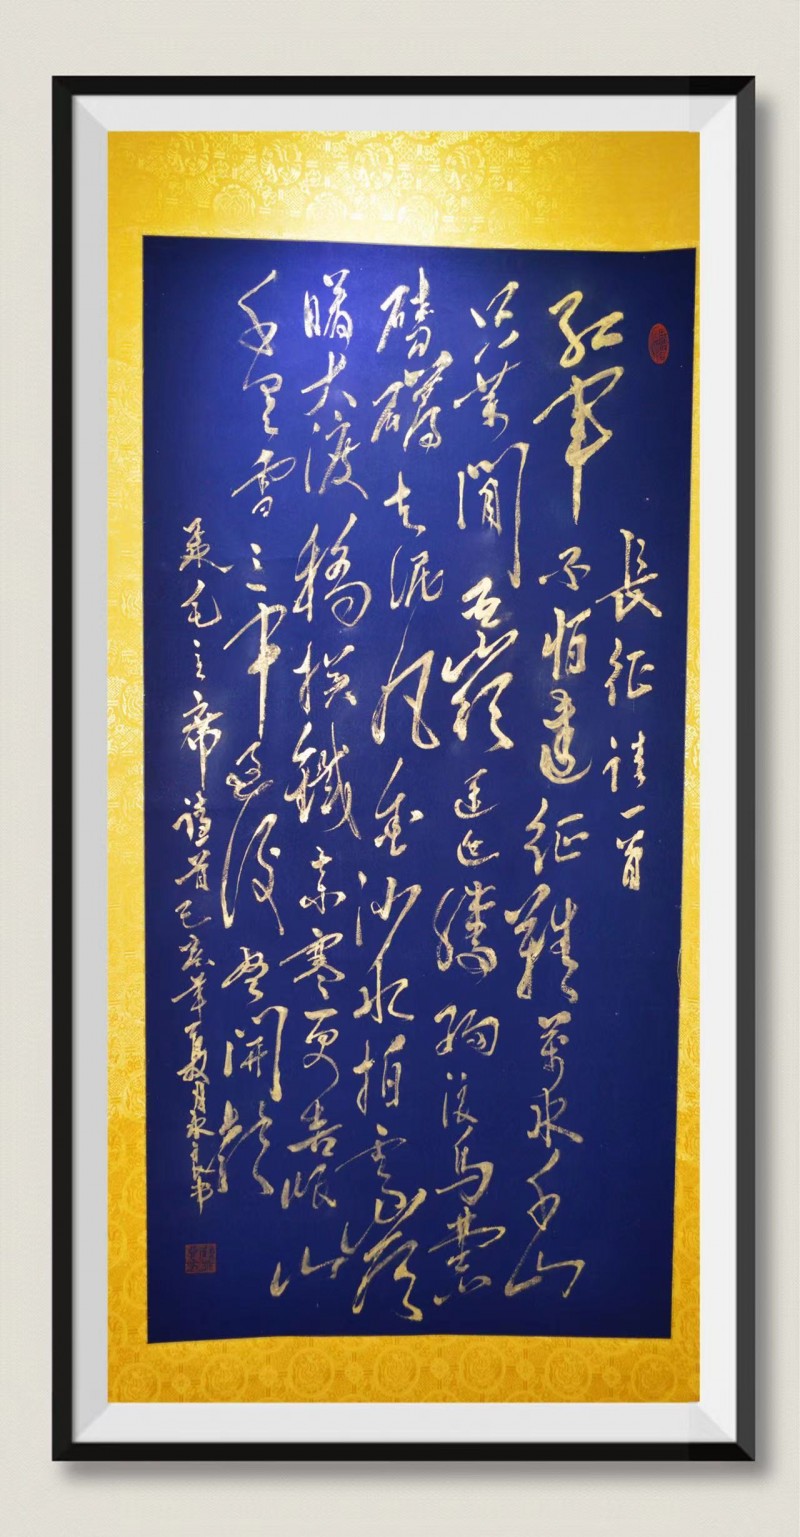 長征詩一首
紅軍不怕遠征難萬水千山
只等閒五嶺逶迤騰細浪烏蒙
磅礴走泥丸金沙水拍雲崖
暖大渡橋橫鐵索寒更喜岷山
千里雪三軍過後盡開顏
录毛主席詩首己亥年夏月书